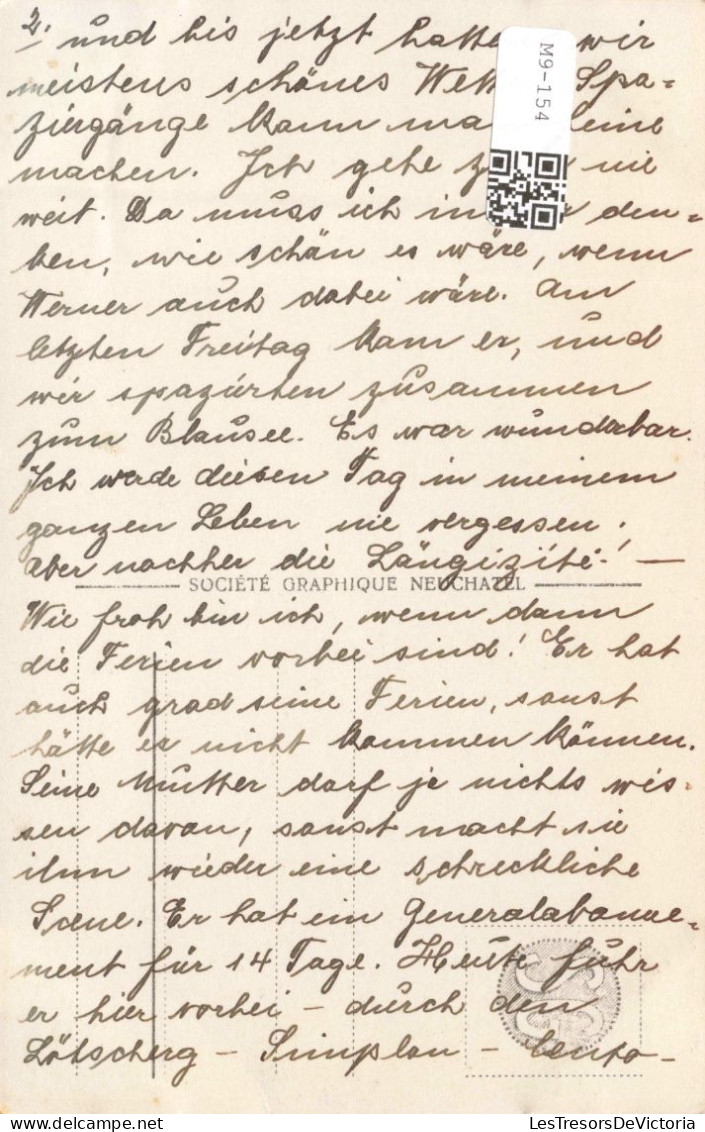 2. und bis jetzt hatte wir
meistens schönes Wet Spa-
ziergänge kann ma eine
machen. Ich gehe z nie
weit. Da muss ich in den-
ken, wie schön es wäre, wenn
Werner auch dabei wäre. Am
letzten Freitag kam er, und
wir spazierten zusammen
zum Blausee. Es war wunderbar.
Ich werde diesen Tag in meinem
ganzen Leben nie vergessen!
Aber nachher die Längizité! —
SOCIÉTÉ GRAPHIQUE NEUCHATEL
Wie froh bin ich, wenn dann
die Ferien vorbei sind! Er hat
auch grad seine Ferien, sonst
hätte er nicht kommen können.
Seine Mutter darf je nichts wis-
sen davon, sonst macht sie
ihm wieder eine schreckliche
Scene. Er hat ein Generalabonne-
ment für 14 Tage. Heute fuhr
er hier vorbei – durch den
Lötscherg – Simplon – Cento-
M9-154
LesTresorsDeVictoria.com